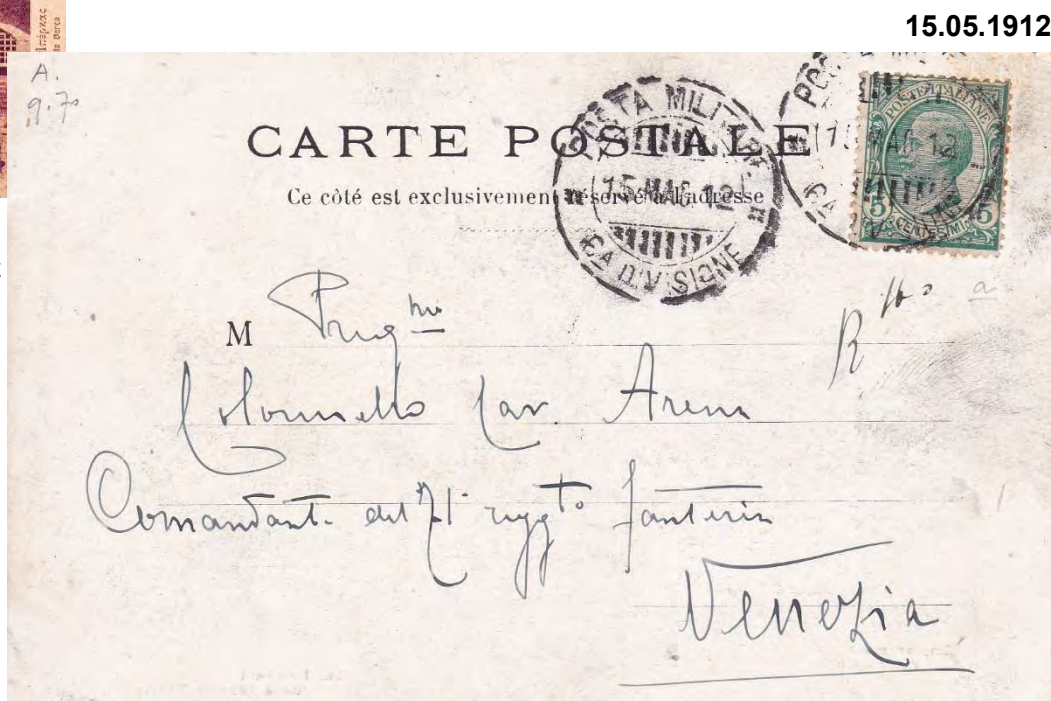 15.05.1912
A.
9.70
CARTE POSTALE
Ce côté est exclusivement réservé à l'adresse
POSTA MILITARE
15 MAG. 12
6A DIVISIONE
POSTE ITALIANE
5 CENTESIMI 5
M Preg mo
Colonnello Cav. Arena
Comandante del 71 regg to fanteria
Venezia